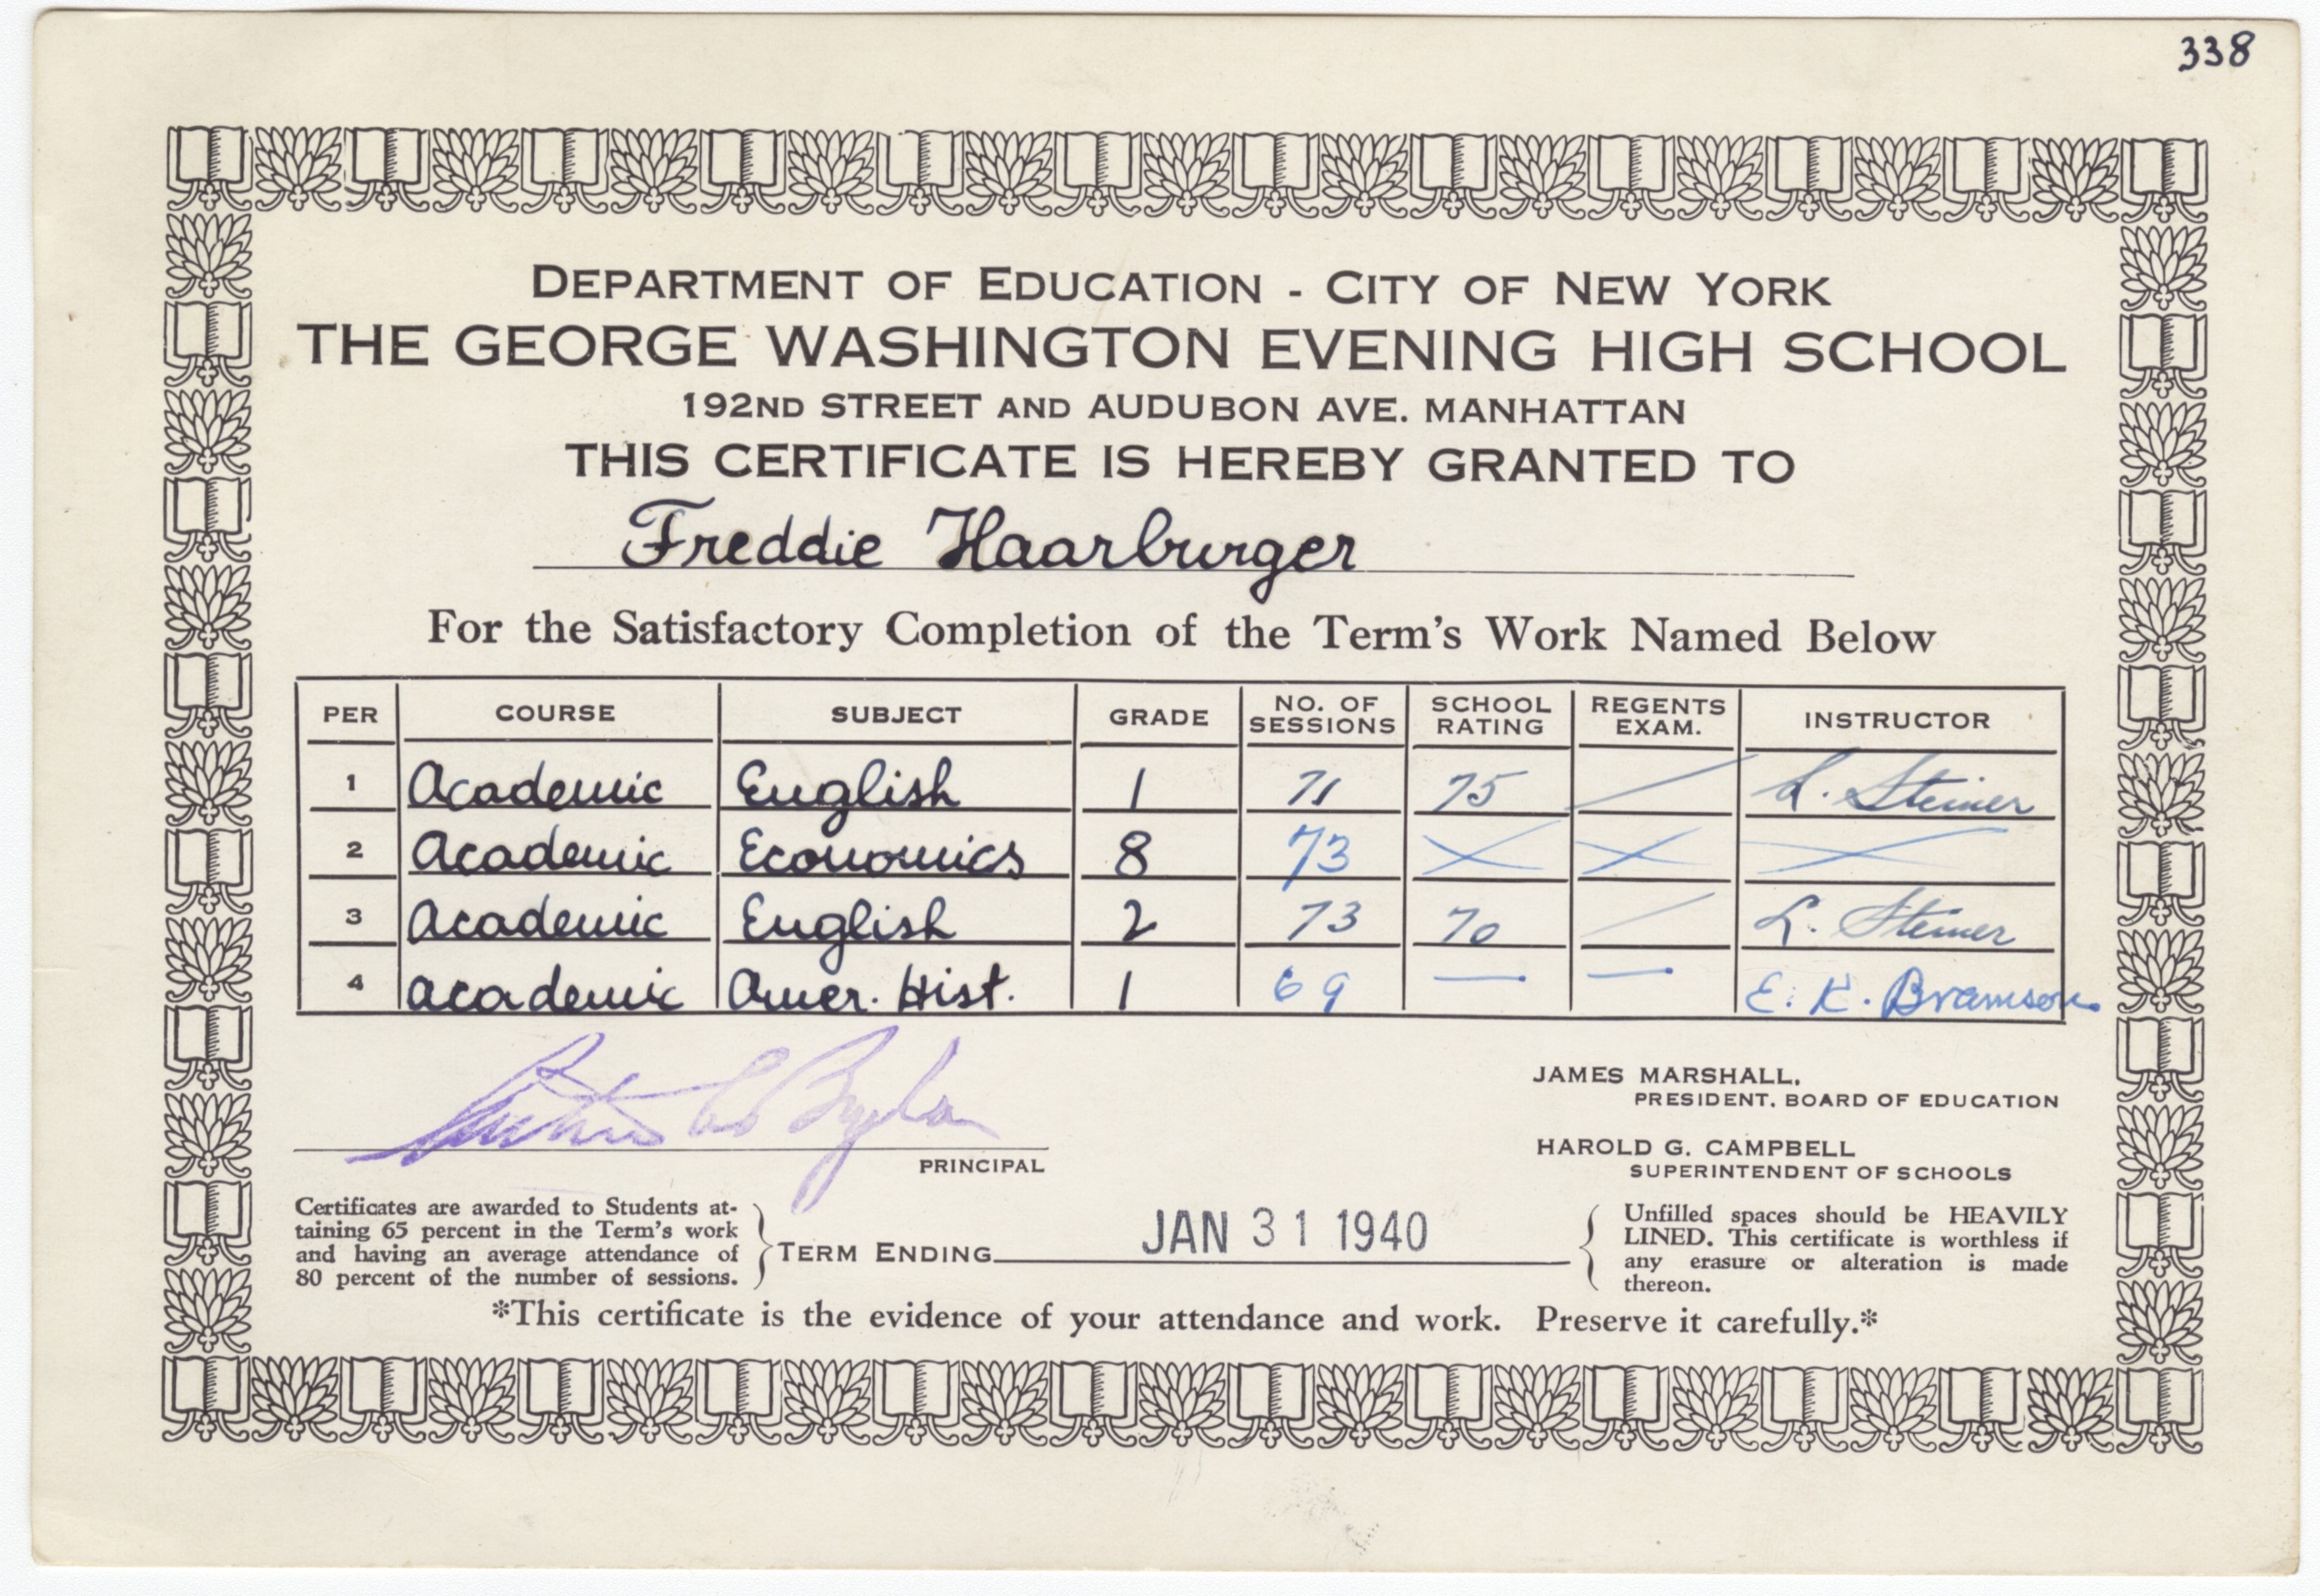 338
DEPARTMENT OF EDUCATION - CITY OF NEW YORK
THE GEORGE WASHINGTON EVENING HIGH SCHOOL
192ND STREET AND AUDUBON AVE. MANHATTAN
THIS CERTIFICATE IS HEREBY GRANTED TO
Freddie Haarburger
For the Satisfactory Completion of the Term's Work Named Below
PER COURSE SUBJECT GRADE NO. OF SESSIONS SCHOOL RATING REGENTS EXAM. INSTRUCTOR
1 Academic English 1 71 75 L. Steiner
2 Academic Economics 8 73
3 Academic English 2 73 70 L. Steiner
4 Academic Amer. Hist. 1 69 — — E. K. Bramson
PRINCIPAL
JAMES MARSHALL,
PRESIDENT, BOARD OF EDUCATION
HAROLD G. CAMPBELL
SUPERINTENDENT OF SCHOOLS
Certificates are awarded to Students at-
taining 65 percent in the Term's work
and having an average attendance of
80 percent of the number of sessions.
TERM ENDING JAN 31 1940
Unfilled spaces should be HEAVILY
LINED. This certificate is worthless if
any erasure or alteration is made
thereon.
*This certificate is the evidence of your attendance and work. Preserve it carefully.*